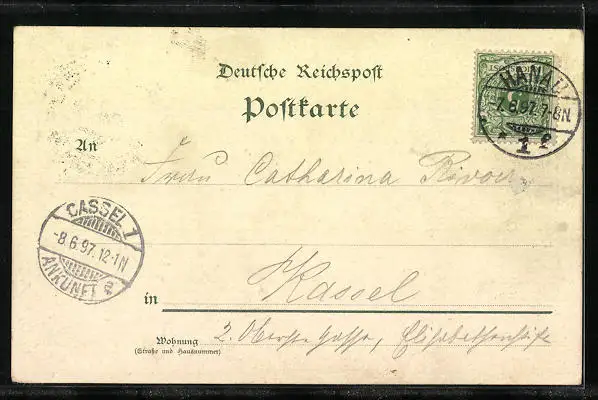 Deutsche Reichspost
Postkarte
HANAU
-7.8.97.7-8N.
* 1 f
An
Frau Catharina
CASSEL 1
-8.6.97.12-1N
ANKUNFT
in Kassel
Wohnung 2.
(Straße und Hausnummer)